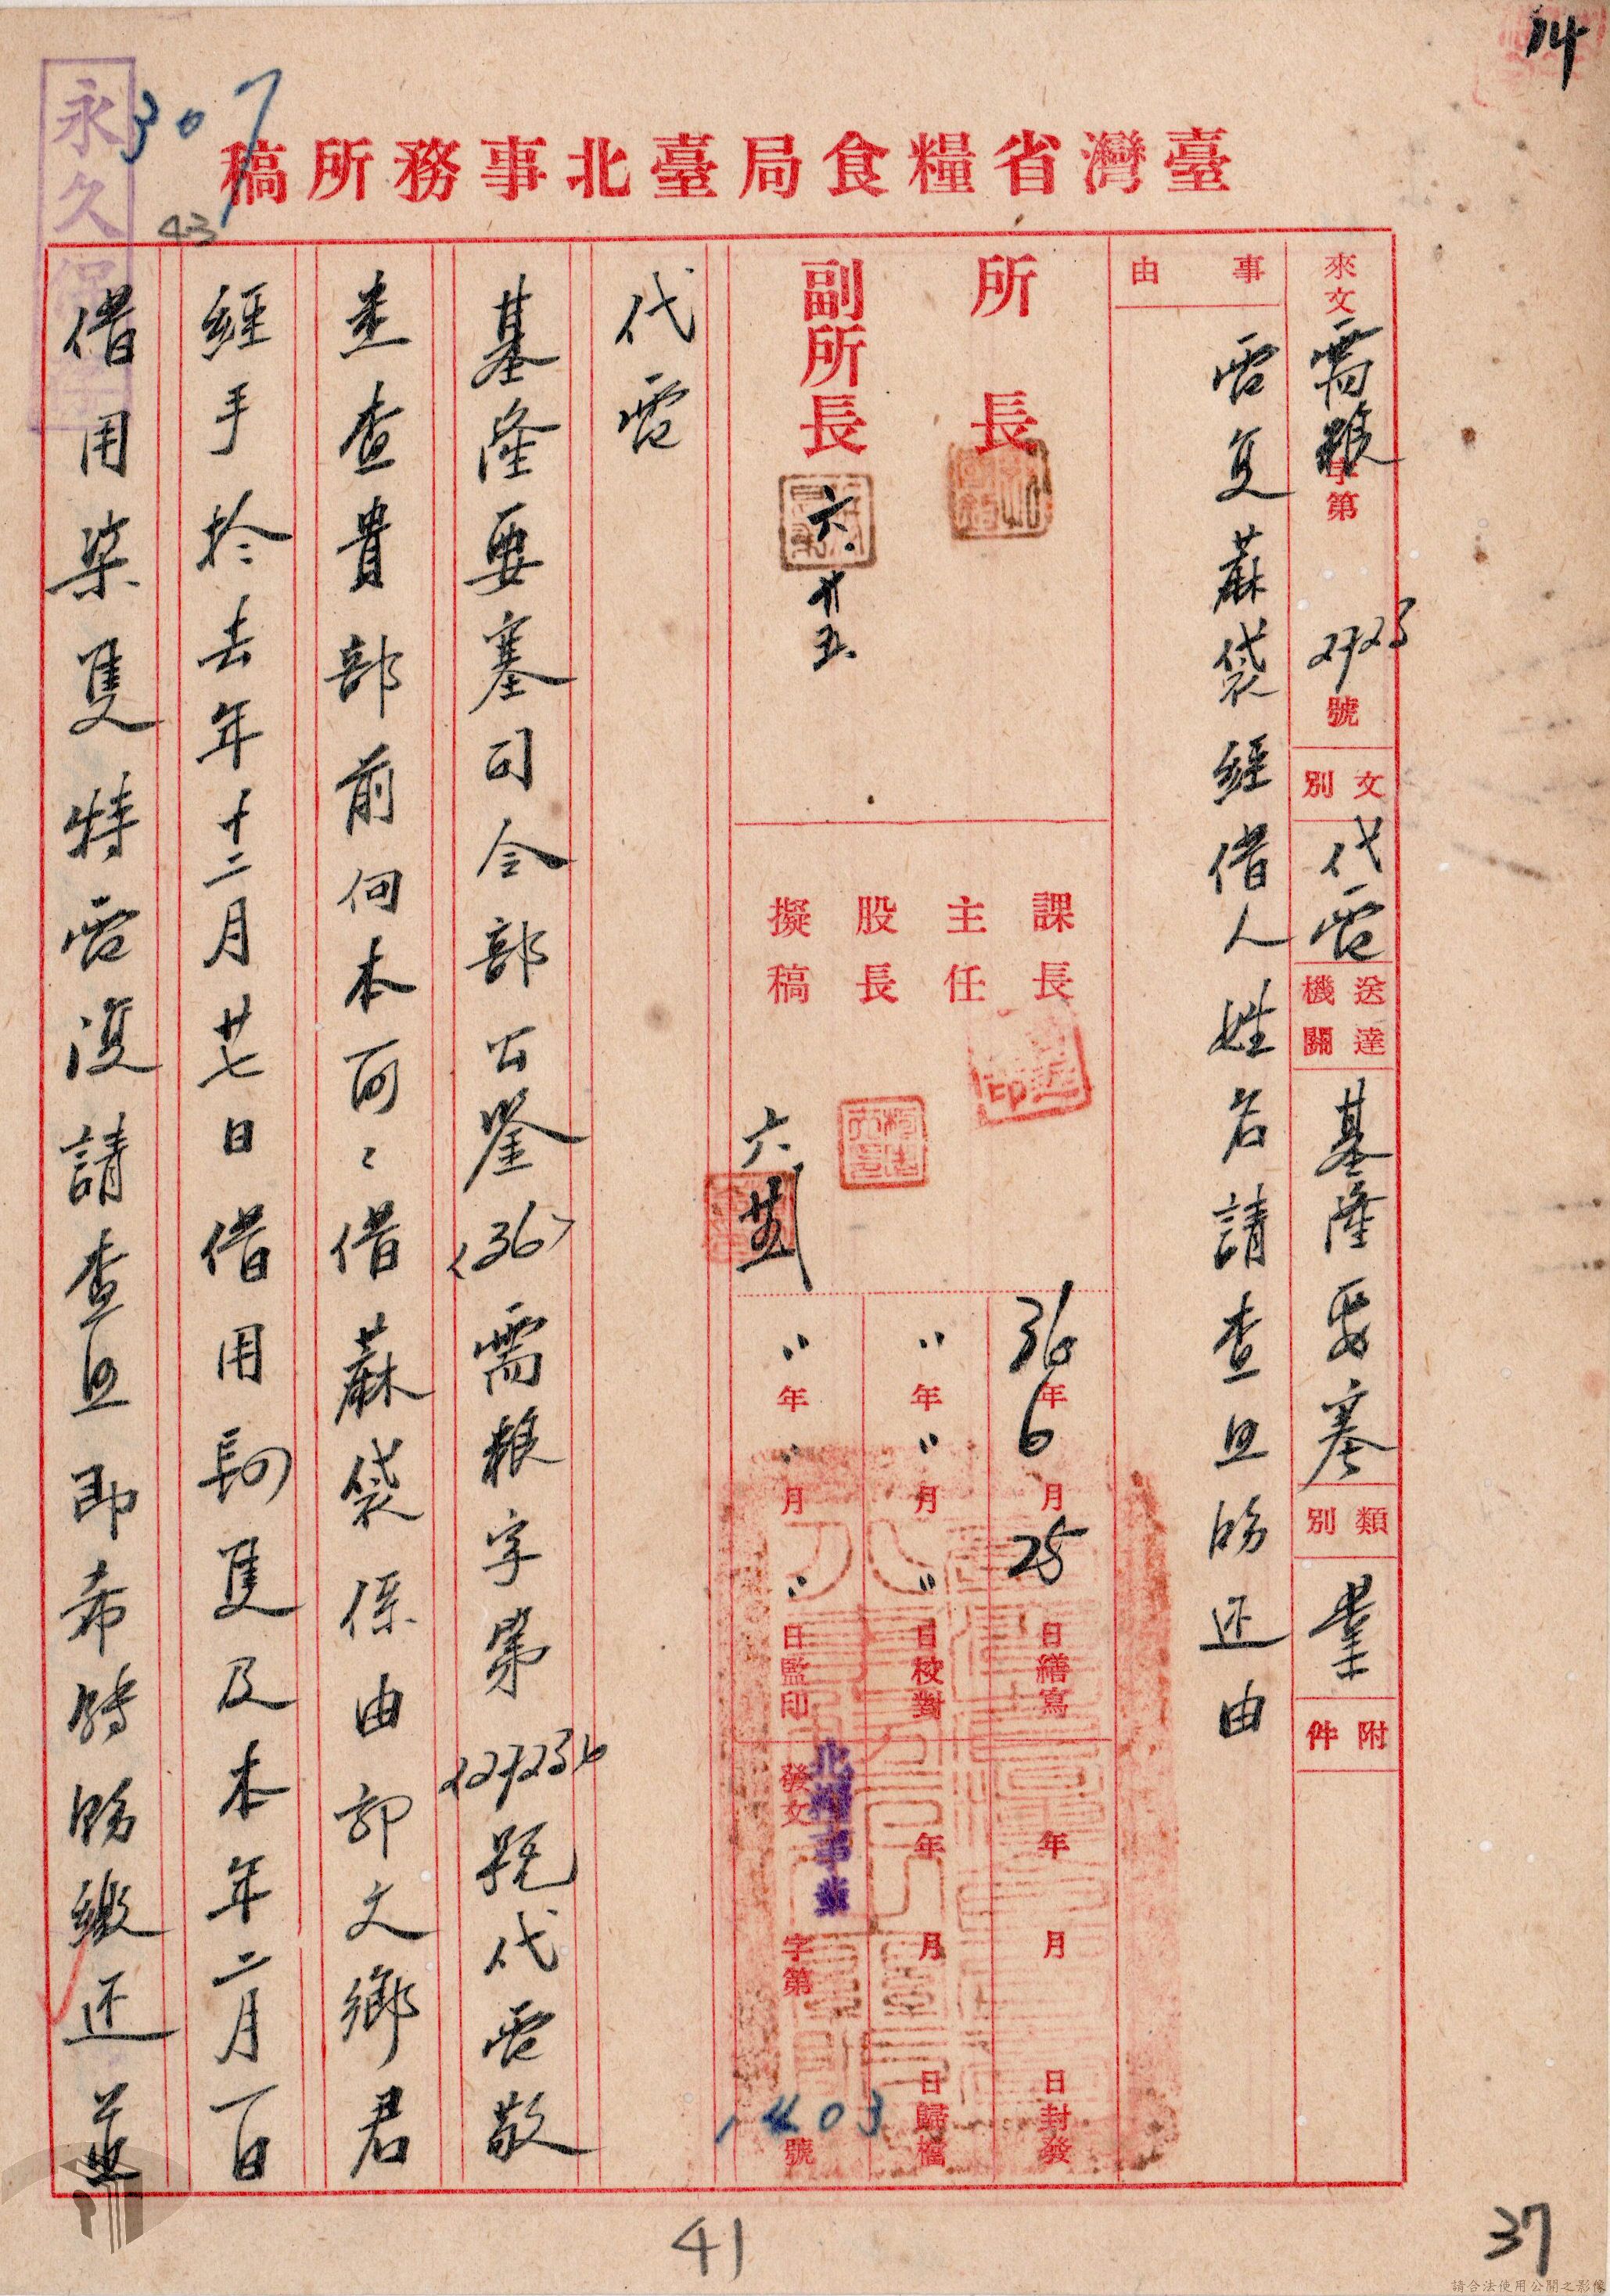 14
永久保存
307
43
臺灣省糧食局臺北事務所稿
來文 需粮字第 2725 號
文別 代電
送達機關 基隆要塞
類別 業
附件
事由
電复蔴袋經借人姓名請查且的还由
所長
副所長
六.廿五.
課長
主任
股長
擬稿
六.廿五
36年6月25日繕寫
〃年〃月〃日校對
〃年〃月〃日監印
年 月 日封發
年 月 日歸檔
發文 北糧事業 字第 1403 號
代電
基隆要塞司令部公鑒(36)需粮字第(2725)號代電敬
悉查貴部前向本所之借蔴袋係由郭文鄉君
經手於去年十二月廿七日借用 隻及本年二月一日
借用柒隻特電復請查且即希 繳还並
41
37
請合法使用公開之影像